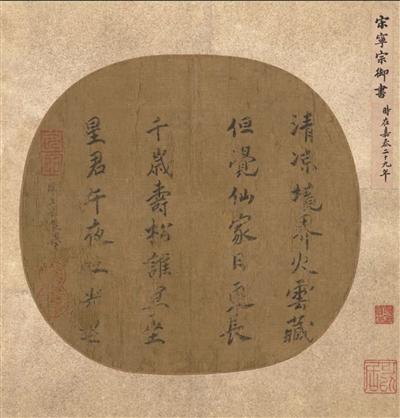 宋寧宗御書
時在嘉泰二十九年
清涼境界火雲藏
但覺仙家日更長
千歲壽松誰坐
星君午夜光芒